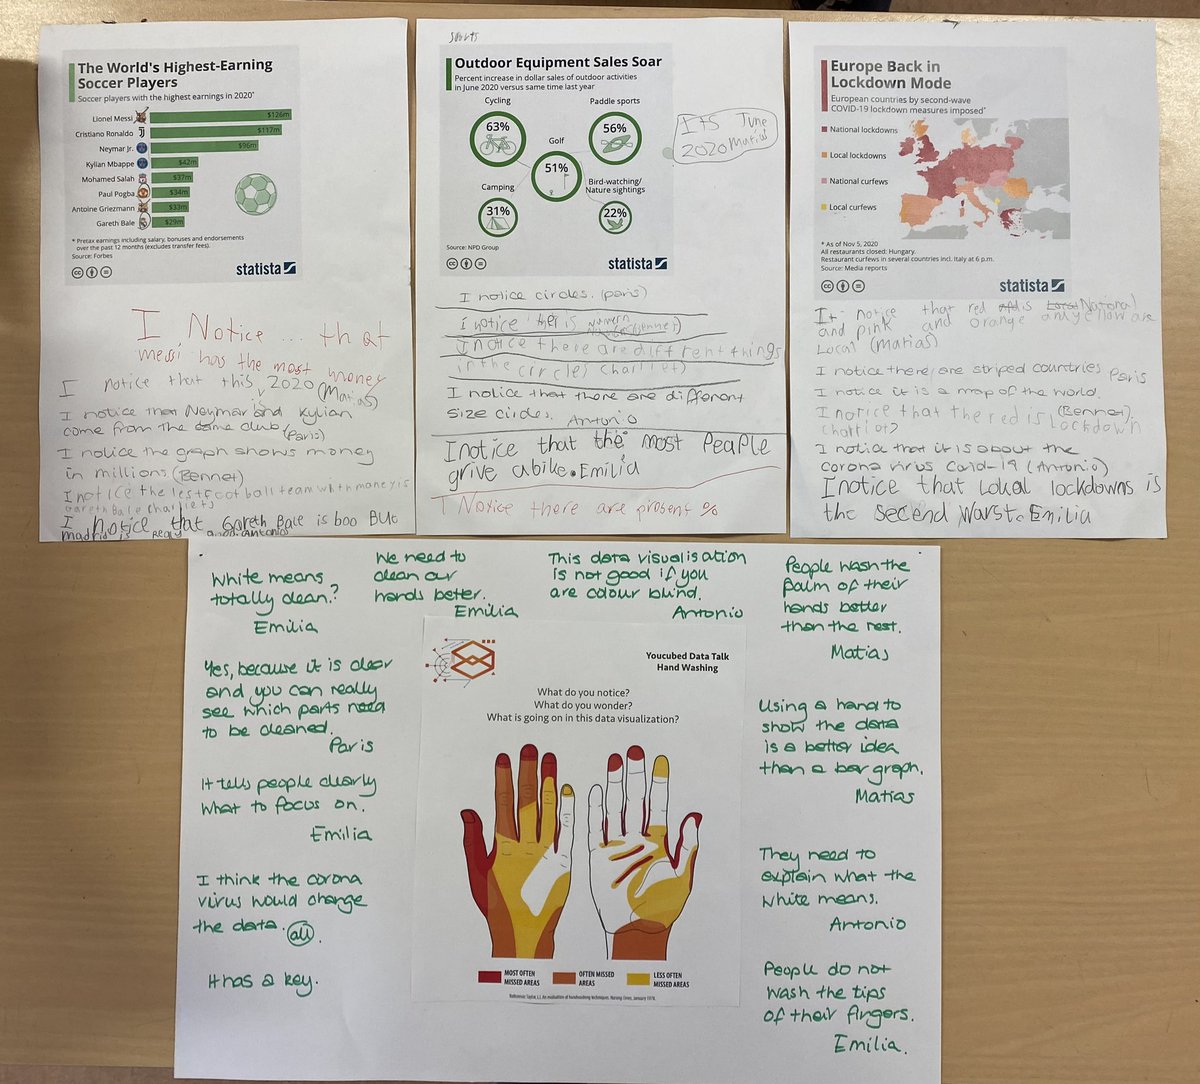 The World's Highest-Earning
Soccer Players
Soccer players with the highest earnings in 2020*
Lionel Messi $126m
Cristiano Ronaldo $117m
Neymar Jr. $96m
Kylian Mbappe $42m
Mohamed Salah $37m
Paul Pogba $34m
Antoine Griezmann $33m
Gareth Bale $29m
* Pretax earnings including salary, bonuses and endorsements
over the past 12 months (excludes transfer fees).
Source: Forbes
statista
I Notice ... that
messi has the most money
I notice that this is 2020 (Matias)
I notice that Neymar and Kylian
come from the same club (Paris)
I notice the graph shows money
in millions (Bennet)
I notice the lest football team with money is
Gareth Bale
I notice that Gareth Bale is boo But
madrid is Antonio
sports
Outdoor Equipment Sales Soar
Percent increase in dollar sales of outdoor activities
in June 2020 versus same time last year
Cycling
63%
Paddle sports
56%
Golf
51%
Camping
31%
Bird-watching/
Nature sightings
22%
Source: NPD Group
statista
ITS June
2020 Matias
I notice circles. (Paris)
I notice ther is (Bennet)
I notice there are diffrent things
in the circles
I notice that there are different
size circles.
Antonio
I notice that the most People
grive a bike. Emilia
I Notice there are present %
Europe Back in
Lockdown Mode
European countries by second-wave
COVID-19 lockdown measures imposed*
National lockdowns
Local lockdowns
National curfews
Local curfews
* As of Nov 5, 2020
All restaurants closed: Hungary.
Restaurant curfews in several countries incl. Italy at 6 p.m.
Source: Media reports
statista
I notice that red is National
and pink and orange and yellow are
Local (Matias)
I notice there are striped countries Paris
I notice it is a map of the world.
(Bennet)
I notice that the red is Lockdown
I notice that it is about the
corona virus Covid-19 (Antonio)
I notice that Lokal lockdowns is
the second warst. Emilia
White means
totally clean?
Emilia
We need to
clean our
hands better.
Emilia
This data visualisation
is not good if you
are colour blind.
Antonio
People wash the
palm of their
hands better
than the rest.
Matias
Yes, because it is clear
and you can really
see which parts need
to be cleaned.
Paris
It tells people clearly
what to focus on.
Emilia
I think the corona
virus would change
the data. all.
It has a key.
Youcubed Data Talk
Hand Washing
What do you notice?
What do you wonder?
What is going on in this data visualization?
MOST OFTEN
MISSED AREAS
OFTEN MISSED
AREAS
LESS OFTEN
MISSED AREAS
Reference: Taylor, LJ. An evaluation of handwashing techniques. Nursing Times, January 1978.
Using a hand to
show the data
is a better idea
than a bar graph.
Matias
They need to
explain what the
white means.
Antonio
People do not
wash the tips
of their fingers.
Emilia.